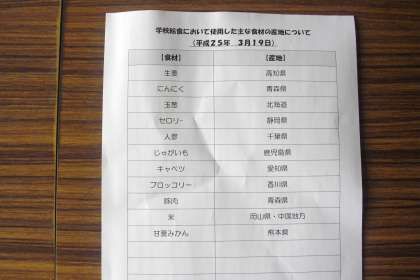 学校給食において使用した主な食材の産地について
（平成２５年　３月１９日）
【食材】　【産地】
生姜　高知県
にんにく　青森県
玉葱　北海道
セロリー　静岡県
人参　千葉県
じゃがいも　鹿児島県
キャベツ　愛知県
ブロッコリー　香川県
豚肉　青森県
米　岡山県・中国地方
甘夏みかん　熊本県